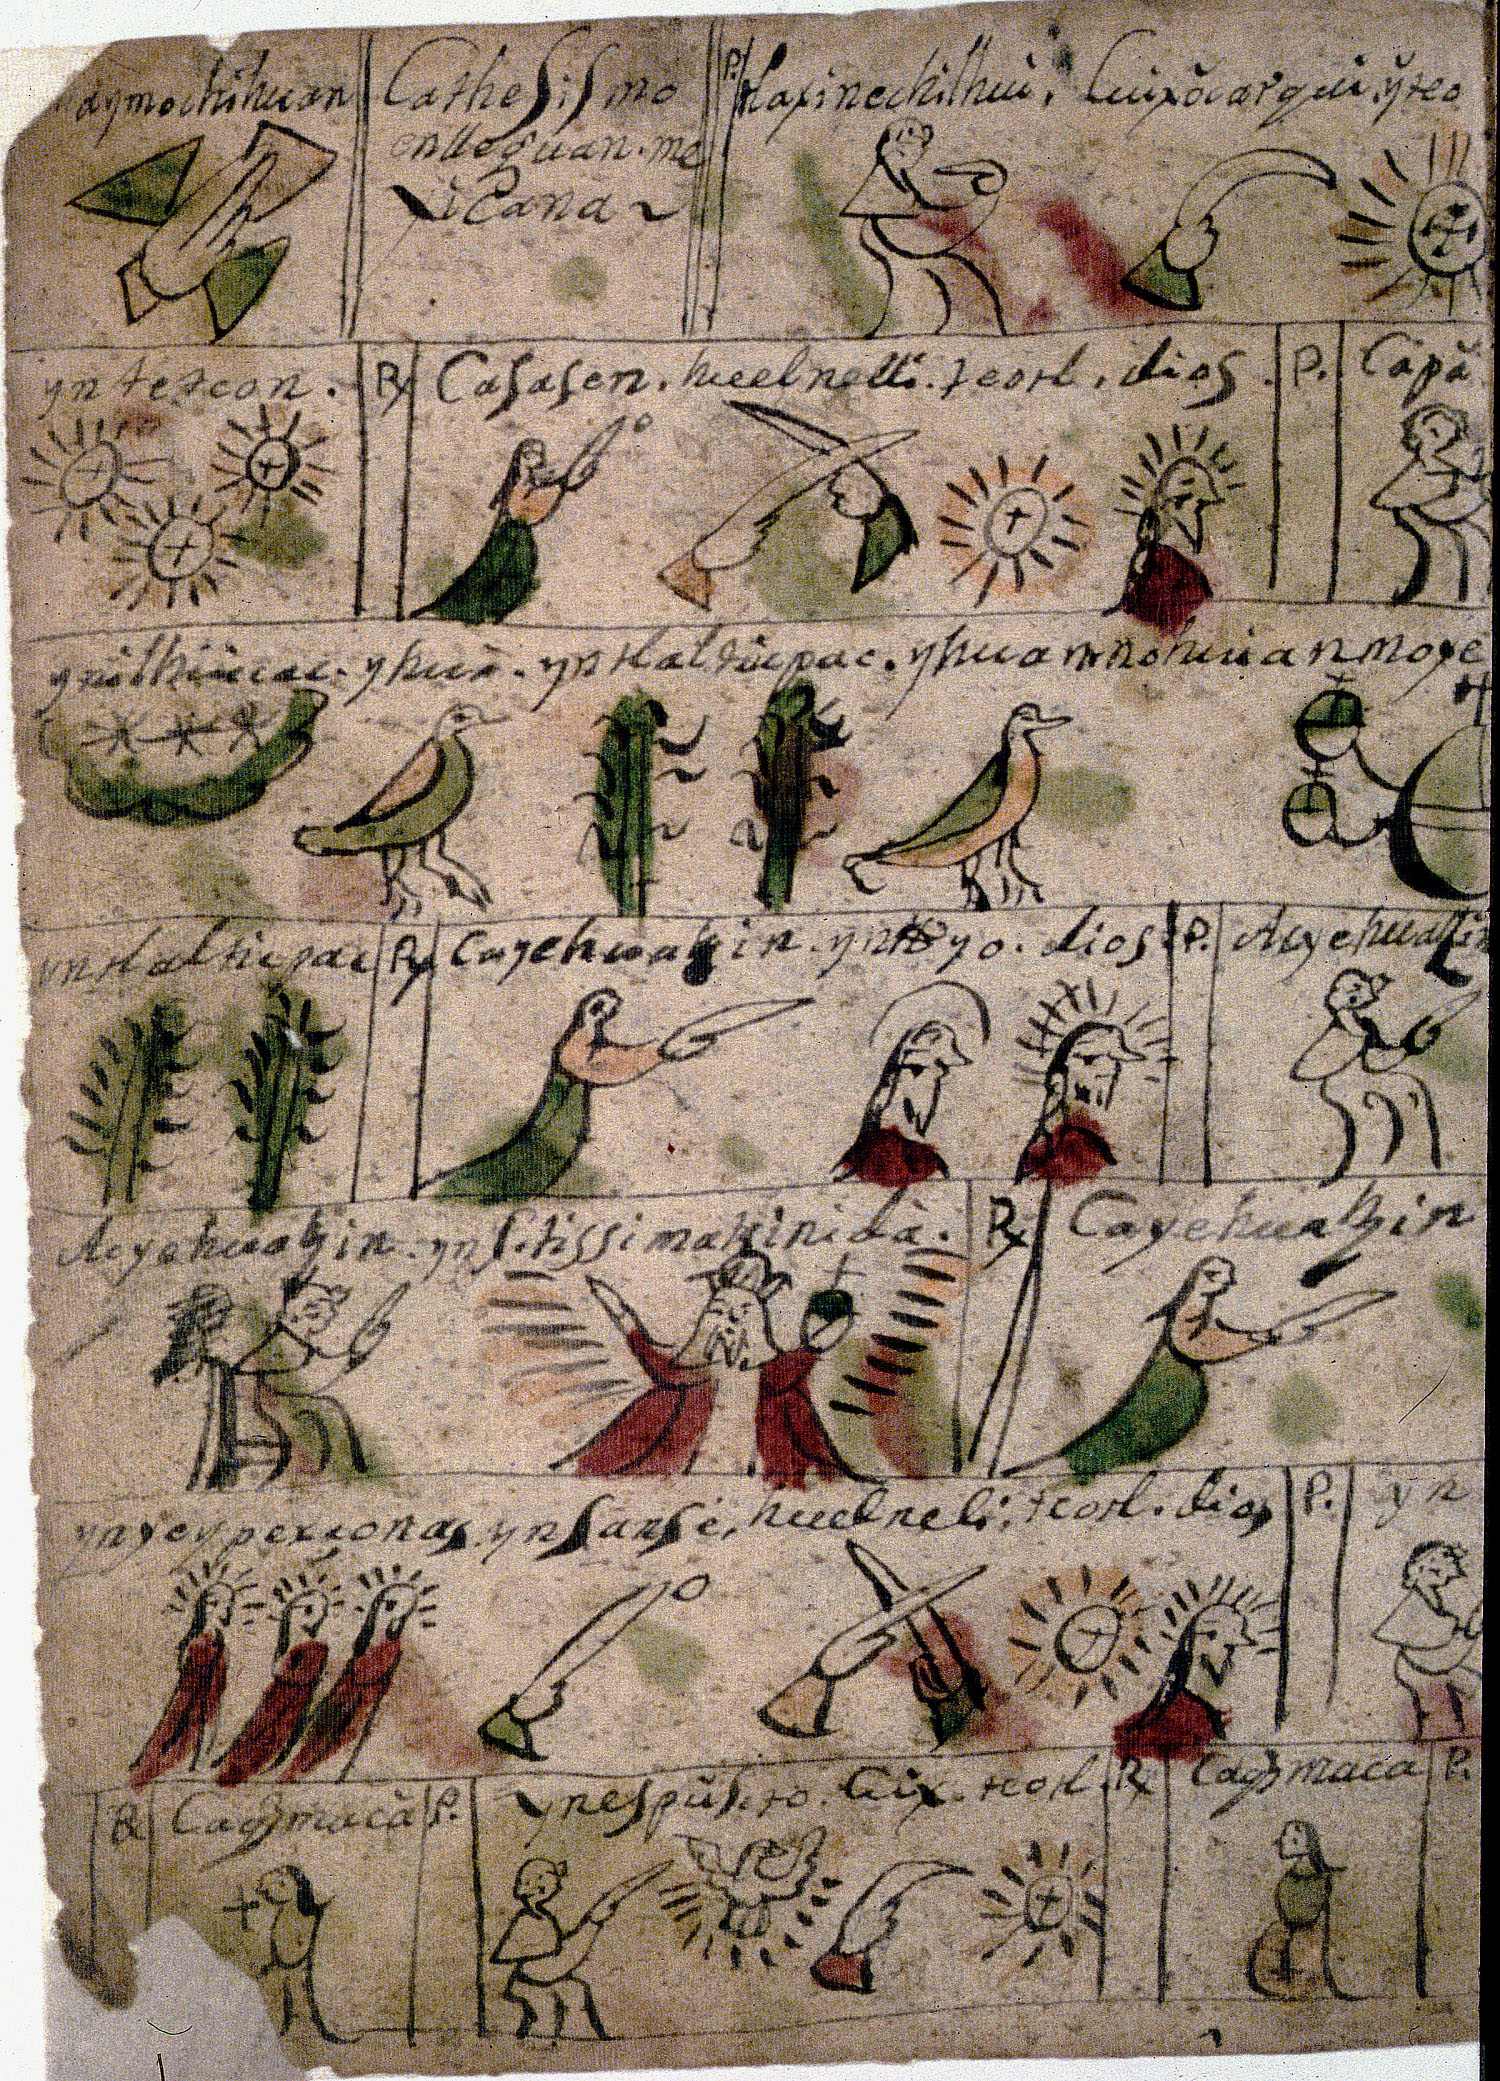 aymochihuan
Cathesismo
enlleguan. me
xicana
P. tlaxinechilhui, Cuixoc yteo
yntetcon.
R Casasen. huelnelli. teotl. dios.
P. Capa
ynilhuicac. yhua. yntlalticpac. yhuannohuianmoye
yntlalticpac
R Cayehuatzin. dios.
P. Acyehuatzin
Acyehuatzin. ynS.tissimatrinidà.
R Cayehuatzin
ynyeypersonas. ynsanse, huelneli. teotl. dios
P. yn
R Caqzmacà
P. ynespũ.sto. Cix. teotl.
R Caqzmaca
P.